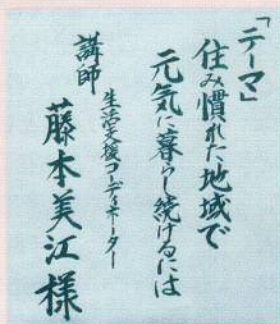 「テーマ」
住み慣れた地域で
元気に暮らし続けるには
講師
生活支援コーディネーター
藤本美江様